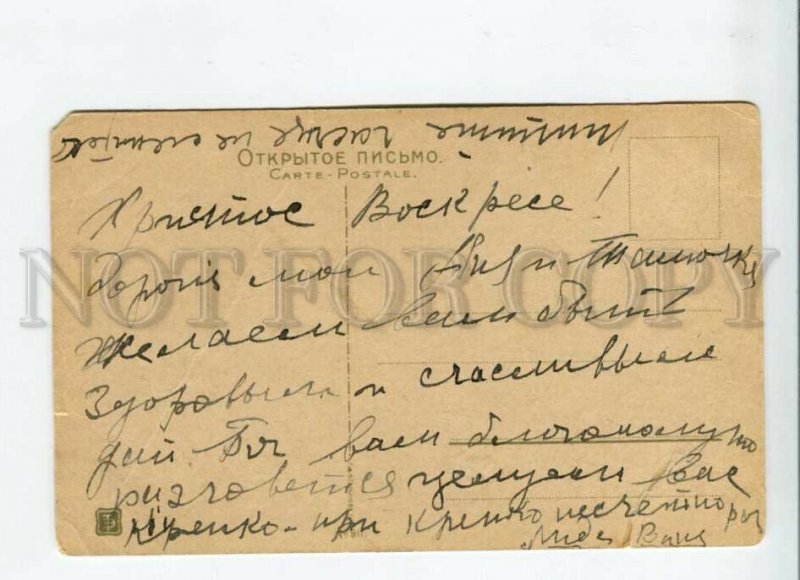 пишите чаще не
ОТКРЫТОЕ ПИСЬМО.
CARTE-POSTALE.
Христос Воскресе!
дороги мои и Тамочка
желаем вам быть
здоровыми и счастливыми
дай Бог вам благополучно
разговется целуем вас
крепко-при крепко несчетно раз
Лида Ваня
NOT FOR COPY